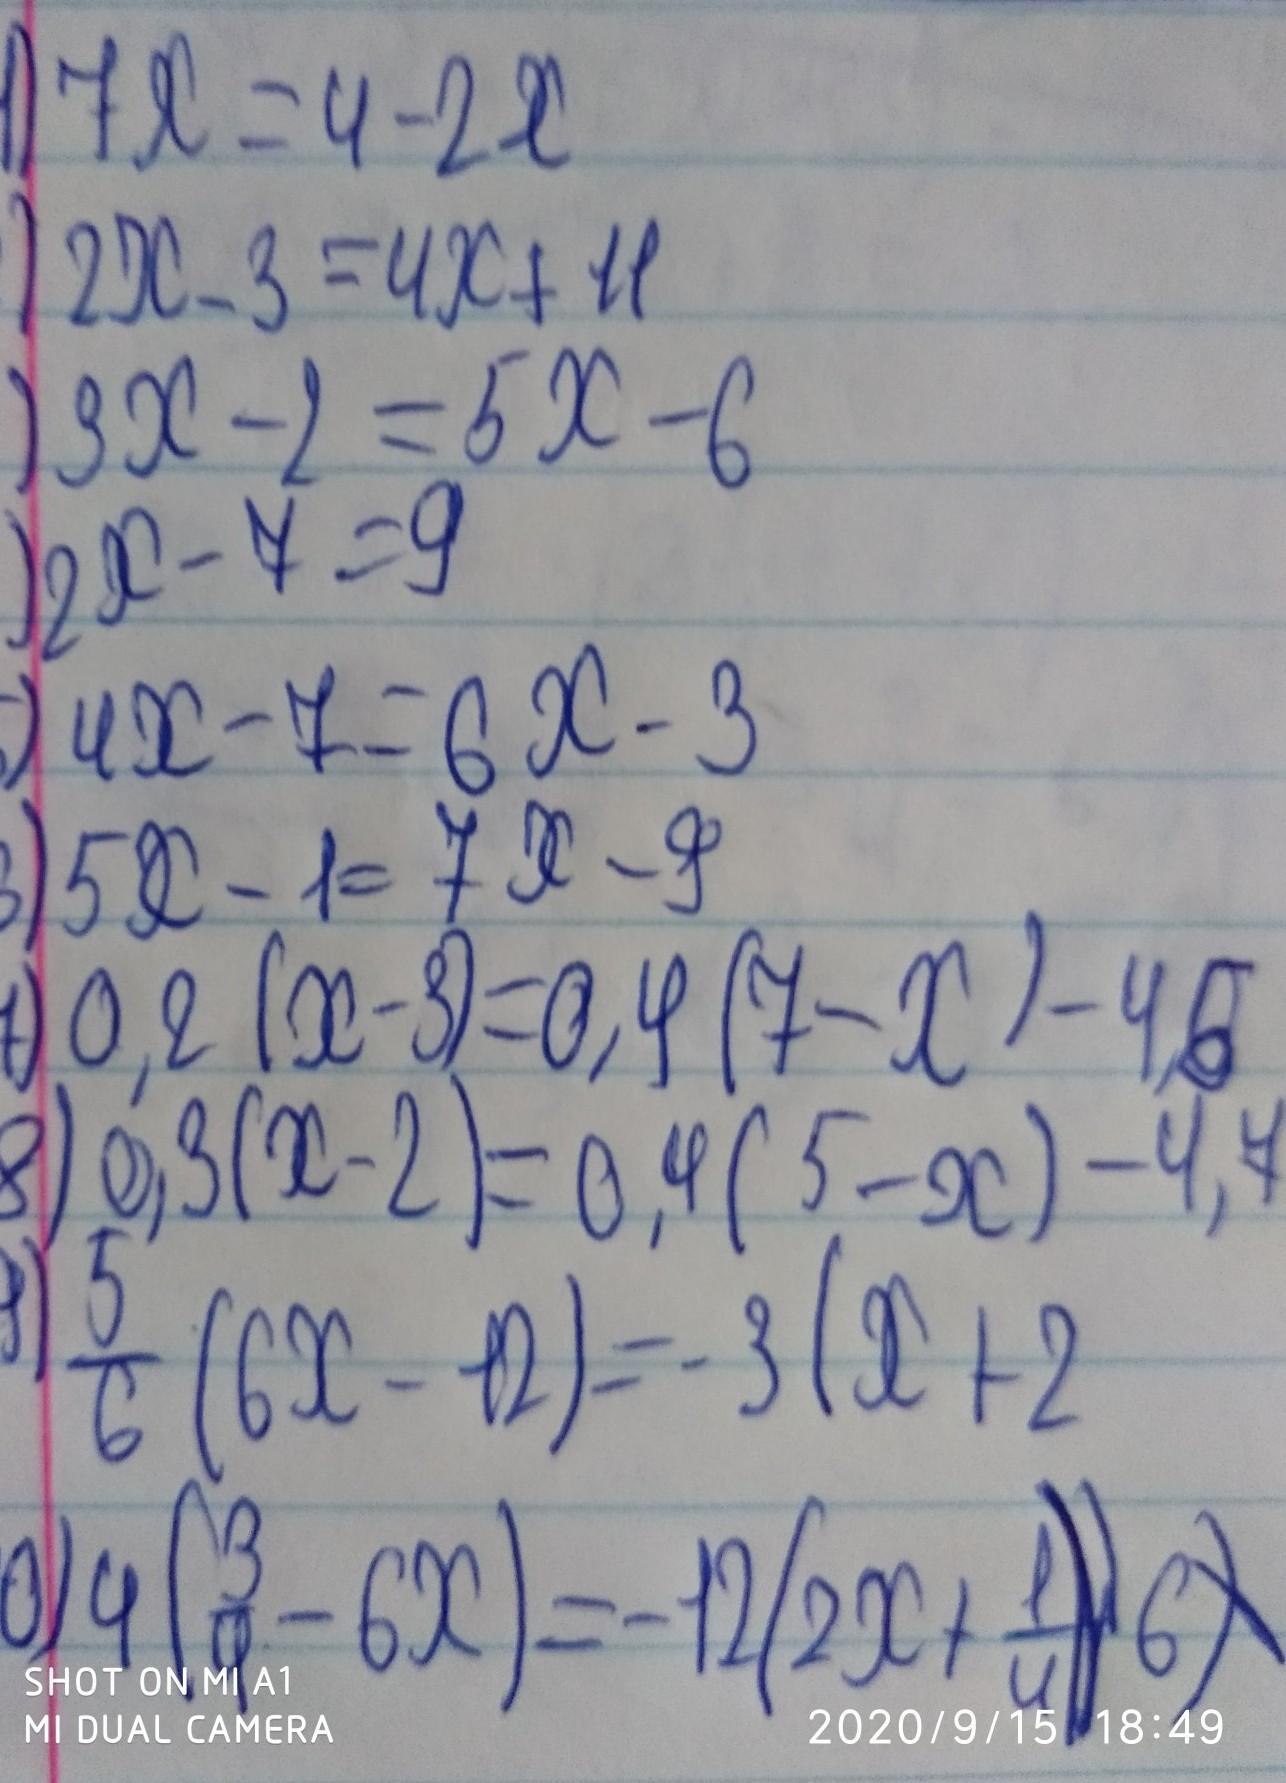 1) 7x = 4 - 2x
) 2x - 3 = 4x + 11
) 3x - 2 = 5x - 6
) 2x - 7 = 9
5) 4x - 7 = 6x - 3
6) 5x - 1 = 7x - 9
7) 0,2 (x - 3) = 0,4 (7 - x) - 4,6
8) 0,3 (x - 2) = 0,4 (5 - x) - 4,7
9) 5/6 (6x - 12) = - 3 (x + 2
0) 4 (3/4 - 6x) = - 12 (2x + 1/4) 6)
SHOT ON MI A1
MI DUAL CAMERA
2020/9/15 18:49